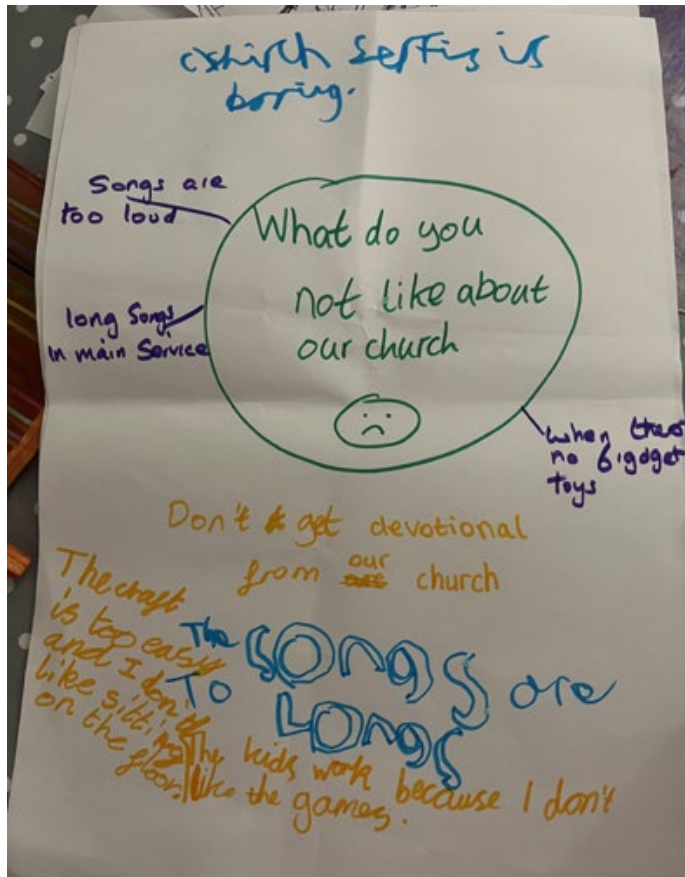 cshirch serfis is
boring.
Songs are
too loud
What do you
not like about
our church
long Songs
in main Service
when
no
toys
Don't get devotional
from our church
The craft
is too easy
and I don't
like sitting
on the floor.
The songs are
To Longs
The kids work because I don't
like the games.